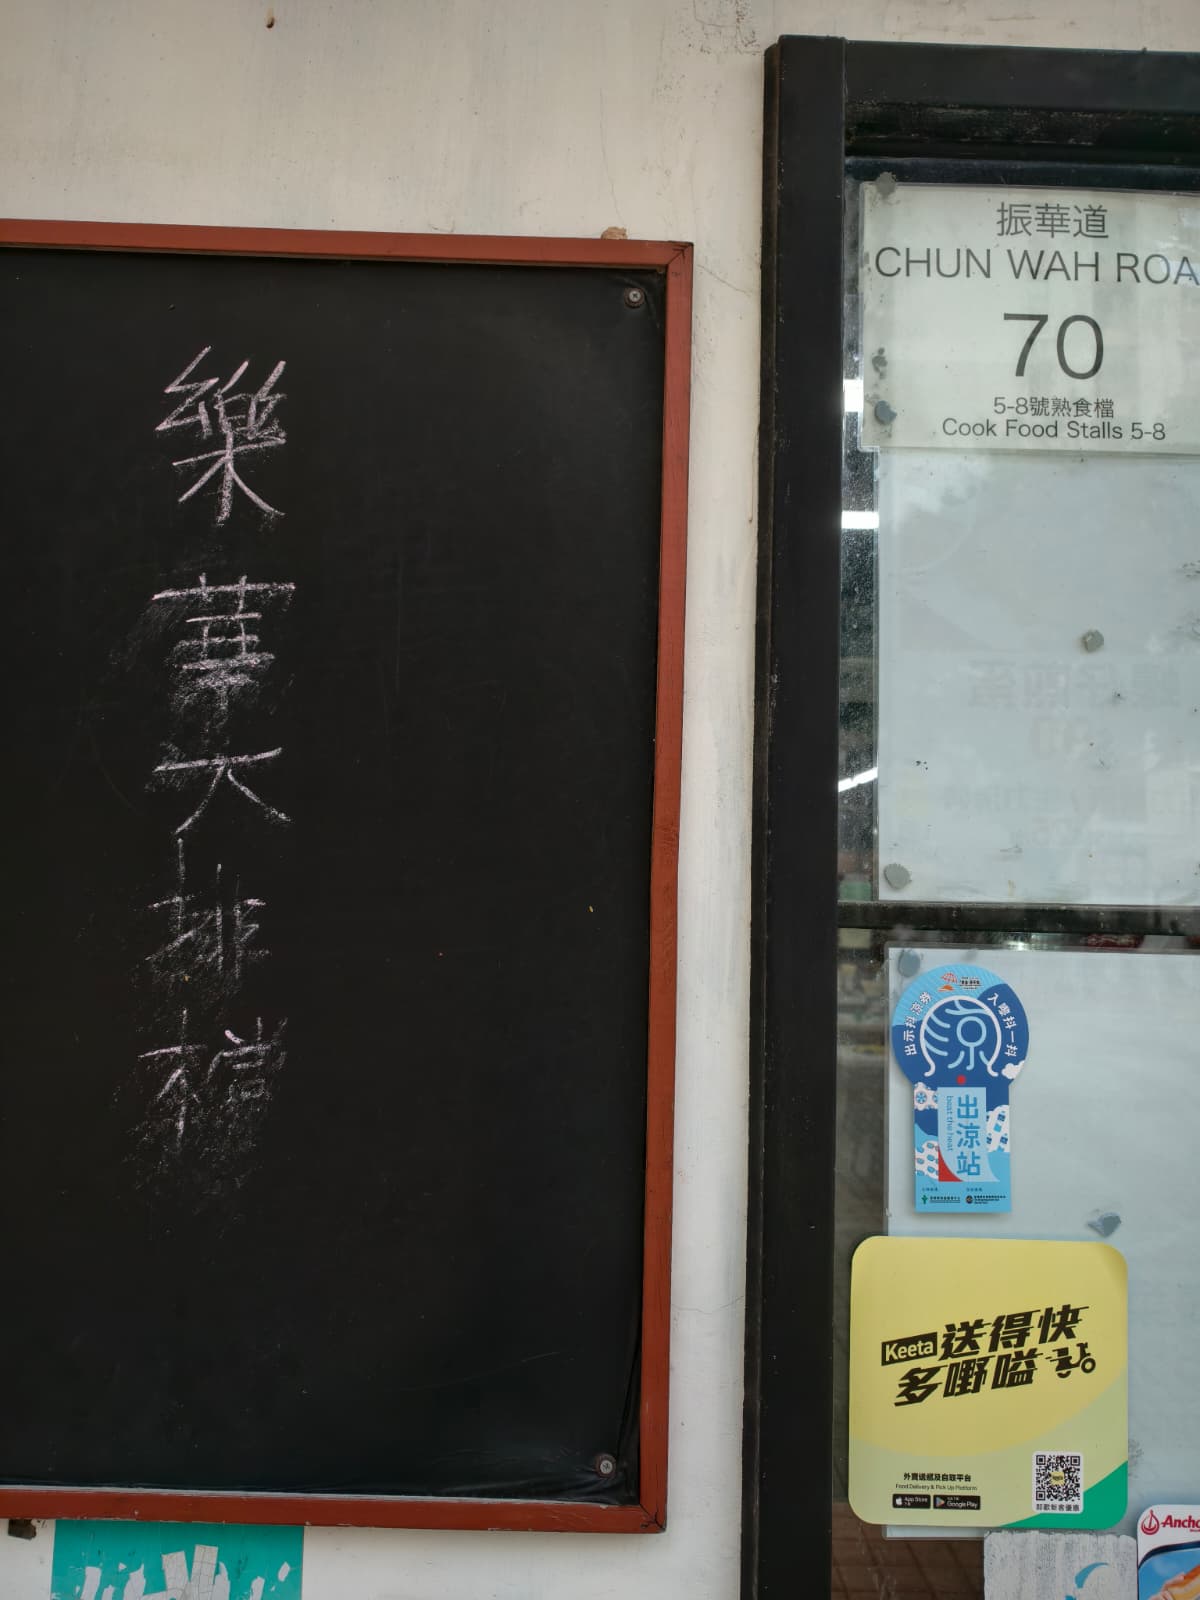 樂華大排檔
振華道
CHUN WAH ROA
70
5-8號熟食檔
Cook Food Stalls 5-8
出示抖涼券
入嚟抖一抖
涼
出涼站
beat the heat
Keeta 送得快
多嘢嗌
外賣速遞及自取平台
Food Delivery & Pick Up Platform
App Store
Google Play
Keeta
Ancho